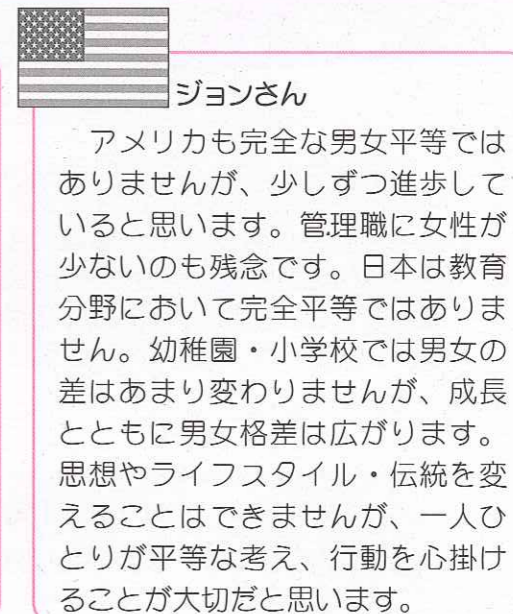 ジョンさん
　アメリカも完全な男女平等では
ありませんが、少しずつ進歩して
いると思います。管理職に女性が
少ないのも残念です。日本は教育
分野において完全平等ではありま
せん。幼稚園・小学校では男女の
差はあまり変わりませんが、成長
とともに男女格差は広がります。
思想やライフスタイル・伝統を変
えることはできませんが、一人ひ
とりが平等な考え、行動を心掛け
ることが大切だと思います。